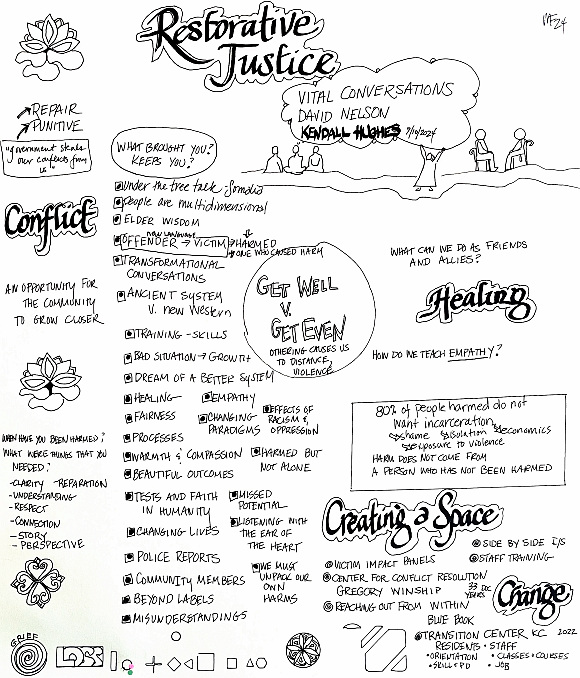 Restorative
Justice
MF24
VITAL CONVERSATIONS
DAVID NELSON
KENDALL HUGHES 7/10/2024
REPAIR
PUNITIVE
"government steals
our conflicts from
us"
Conflict
AN OPPORTUNITY FOR
THE COMMUNITY
TO GROW CLOSER
WHEN HAVE YOU BEEN HARMED?
WHAT WERE THINGS THAT YOU
NEEDED?
-CLARITY -REPARATION
-UNDERSTANDING
-RESPECT
-CONNECTION
-STORY
-PERSPECTIVE
WHAT BROUGHT YOU?
KEEPS YOU?
Under the tree talk Somalia
People are multidimensional
ELDER WISDOM
NEW LANGUAGE
OFFENDER → VICTIM → HARMED
ONE WHO CAUSED HARM
TRANSFORMATIONAL
CONVERSATIONS
ANCIENT SYSTEM
V. new Western
TRAINING - SKILLS
BAD SITUATION → GROWTH
DREAM OF A BETTER SYSTEM
HEALING
EMPATHY
FAIRNESS
CHANGING
PARADIGMS
EFFECTS OF
RACISM &
OPPRESSION
PROCESSES
WARMTH & COMPASSION
HARMED BUT
NOT ALONE
BEAUTIFUL OUTCOMES
TESTS AND FAITH
IN HUMANITY
MISSED
POTENTIAL
CHANGING LIVES
LISTENING WITH
THE EAR OF
THE HEART
POLICE REPORTS
COMMUNITY MEMBERS
WE MUST
UNPACK OUR
OWN
HARMS
BEYOND LABELS
MISUNDERSTANDINGS
GET WELL
V.
GET EVEN
OTHERING CAUSES US
TO DISTANCE,
VIOLENCE
WHAT CAN WE DO AS FRIENDS
AND ALLIES?
Healing
HOW DO WE TEACH EMPATHY?
80% of people harmed do not
want incarceration
shame isolation economics
exposure to violence
HARM DOES NOT COME FROM
A PERSON WHO HAS NOT BEEN HARMED
Creating a Space
SIDE BY SIDE
VICTIM IMPACT PANELS
STAFF TRAINING
CENTER FOR CONFLICT RESOLUTION
GREGORY WINSHIP
33 DOC
YEARS
Change
REACHING OUT FROM WITHIN
BLUE BOOK
TRANSITION CENTER KC 2022
RESIDENTS · STAFF
· ORIENTATION · CLASSES · COURSES
· SKILL + PD · JOB
GRIEF
LOSS